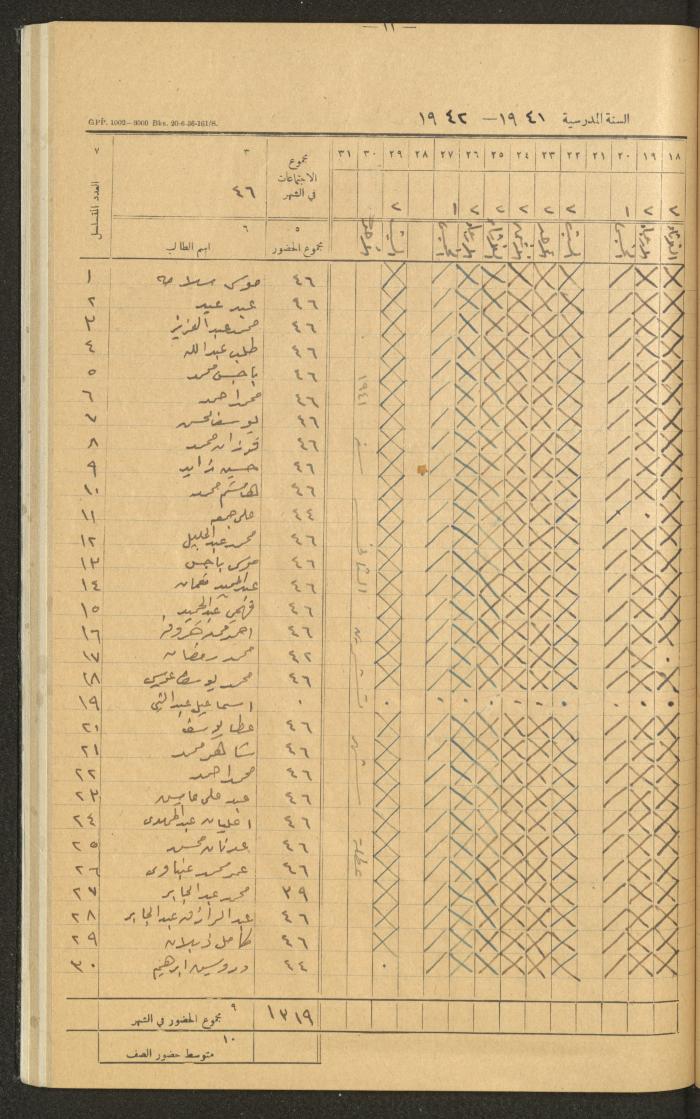 — ١١ —
السنة المدرسية ١٩٤١ — ١٩٤٢
G.P.P. 1002—3000 Bks. 20-6-36-161/S.
١٨ ١٩ ٢٠ ٢١ ٢٢ ٢٣ ٢٤ ٢٥ ٢٦ ٢٧ ٢٨ ٢٩ ٣٠ ٣١ مجموع الاجتماعات في الشهر ٣ ٧
٢ ٢ ١ ٢ ٢ ٢ ٢ ٢ ١ ٢ ٤٦ العدد المتسلسل
٥ ٦
مجموع الحضور اسم الطالب
٤٦ موسى سلامه ١
٤٦ عبد عيد ٢
٤٦ محمد عبد العزيز ٣
٤٦ طلب عبدالله ٤
٤٦ باجس محمد ٥
٤٦ محمد احمد ٦
٤٦ يوسف محسن ٧
٤٦ فوزان محمد ٨
٤٦ حسين زايد ٩
٤٦ هاشم محمد ١٠
٤٤ علي جمعه ١١
٤٦ محمد عبد الجليل ١٢
٤٦ موسى باجس ١٣
٤٦ عبد الحميد نعمان ١٤
٤٦ فهمي عبد الحميد ١٥
٤٦ احمد محمد ١٦
٤٢ محمد رمضان ١٧
٤٦ محمد يوسف ١٨
٠ اسماعيل عبد النبي ١٩
٤٦ عطا يوسف ٢٠
٤٦ شاهر محمد ٢١
٤٦ محمد احمد ٢٢
٤٦ عبد علي ٢٣
٤٦ عبد المهدي ٢٤
٤٦ عدنان محمد ٢٥
٤٦ عمر محمد عنباوي ٢٦
٣٩ محمد عبد الجابر ٢٧
٤٦ عبد الرازق عبد الجابر ٢٨
٤٦ كامل ذيبان ٢٩
٤٤ درويش ابراهيم ٣٠
عطلة شهر تشرين الثاني سنة ١٩٤١
١٣١٩ ٩ مجموع الحضور في الشهر
١٠ متوسط حضور الصف